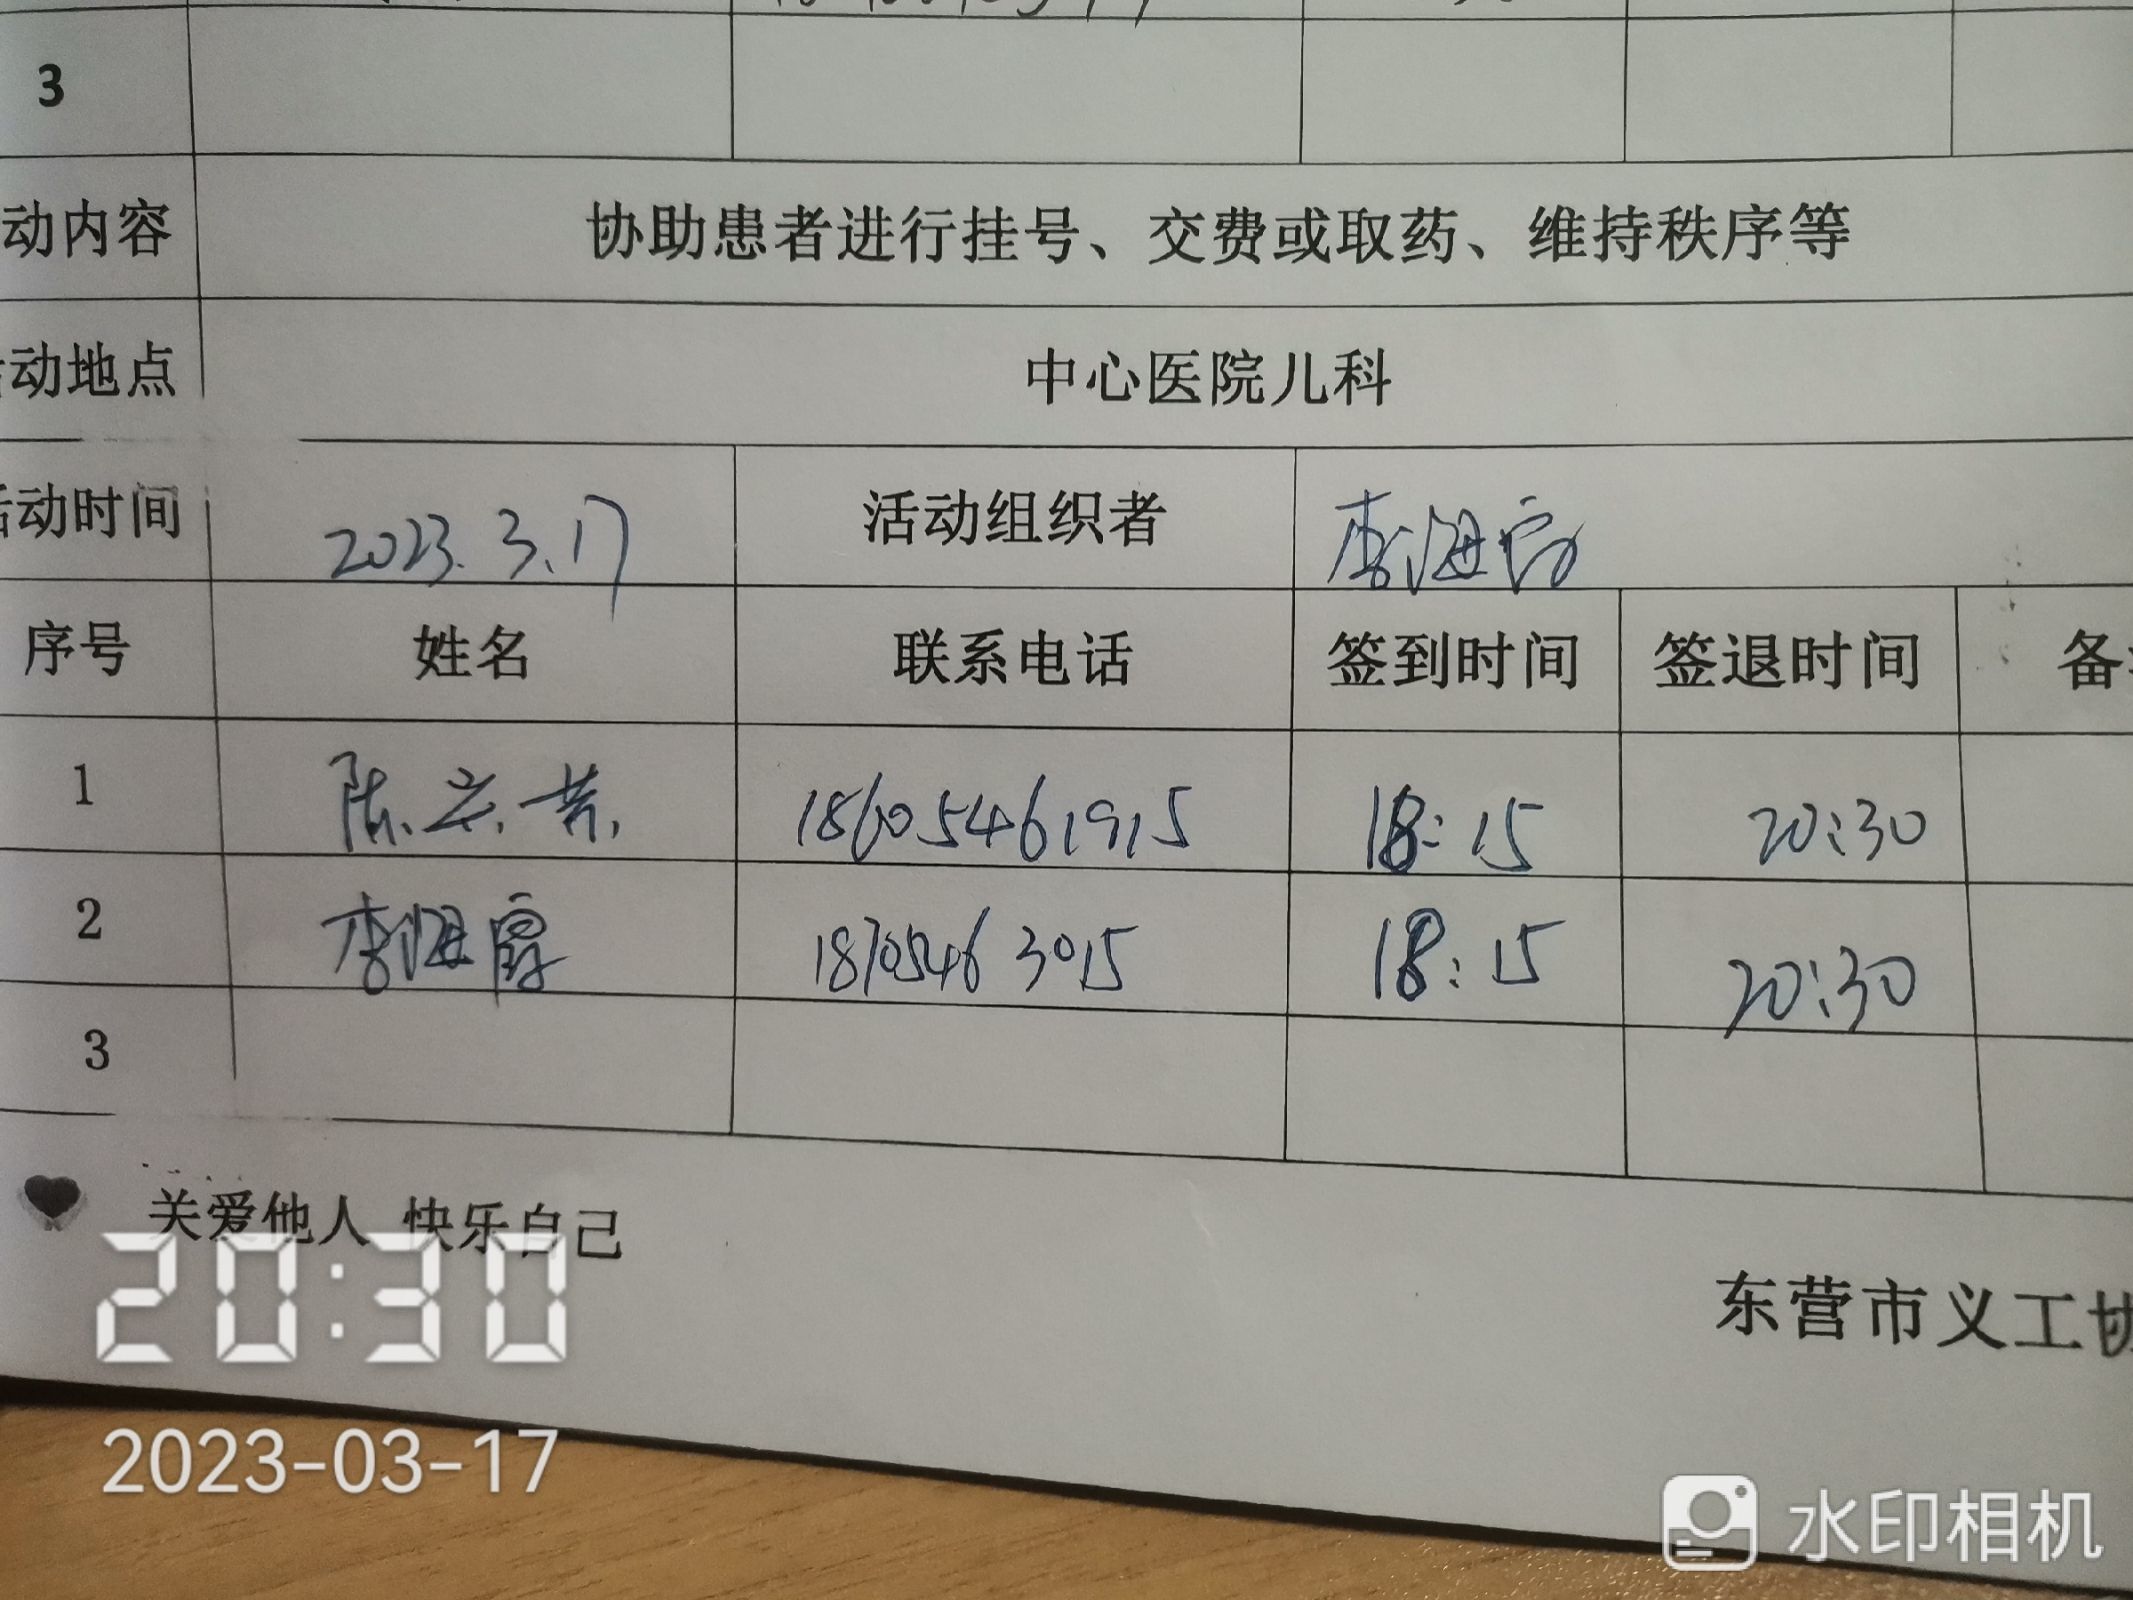 3
动内容 协助患者进行挂号、交费或取药、维持秩序等
活动地点 中心医院儿科
活动时间 2023.3.17 活动组织者 李海霞
序号 姓名 联系电话 签到时间 签退时间 备
1 陈兴芳 18605461915 18:15 20:30
2 李海霞 18705463015 18:15 20:30
3
关爱他人 快乐自己
东营市义工协
20:30
2023-03-17
水印相机